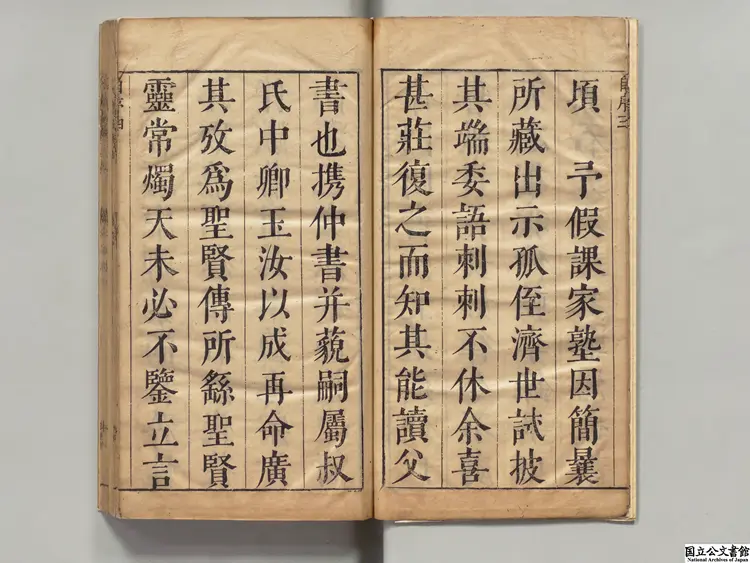 頃 予假課家塾因簡曩
所藏出示孤侄濟世試披
其端委語刺刺不休余喜
甚莊復之而知其能讀父
書也携仲書并藐嗣屬叔
氏中卿玉汝以成再命廣
其攷爲聖賢傳所繇聖賢
靈常燭天未必不鑒立言
国立公文書館
National Archives of Japan